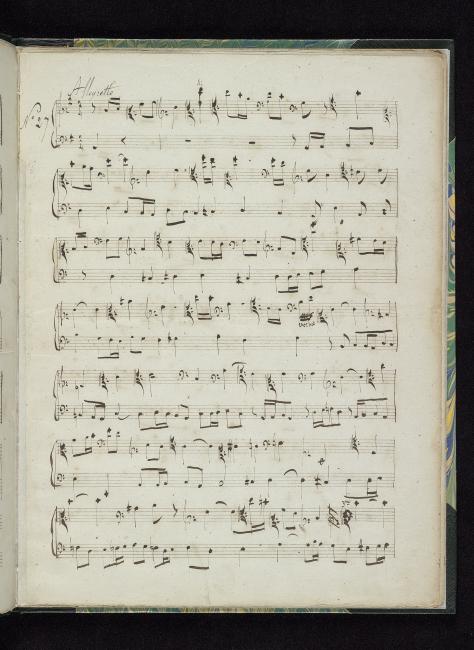 Allegretto
No. 27